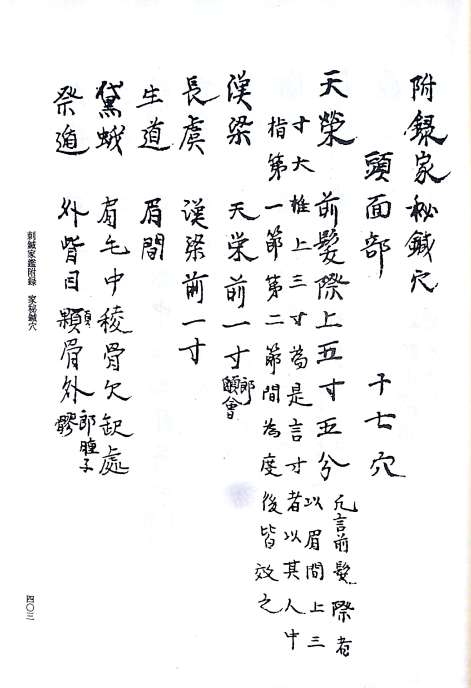 附録家秘鍼穴
頭面部 十七穴
天榮 前髮際上五寸五分 凡言前髮際者
以眉間上三
寸大椎上三寸為是言寸者以其人中
指第一節第二節間為度後皆效之
漢梁 天榮前一寸 郎顖會
長虞 漢梁前一寸
生道 眉間
黛蛾 眉毛中稜骨欠缺處
外眥目 眉外 郎瞳子髎
刺鍼家鑑附録 家秘鍼穴
四〇三